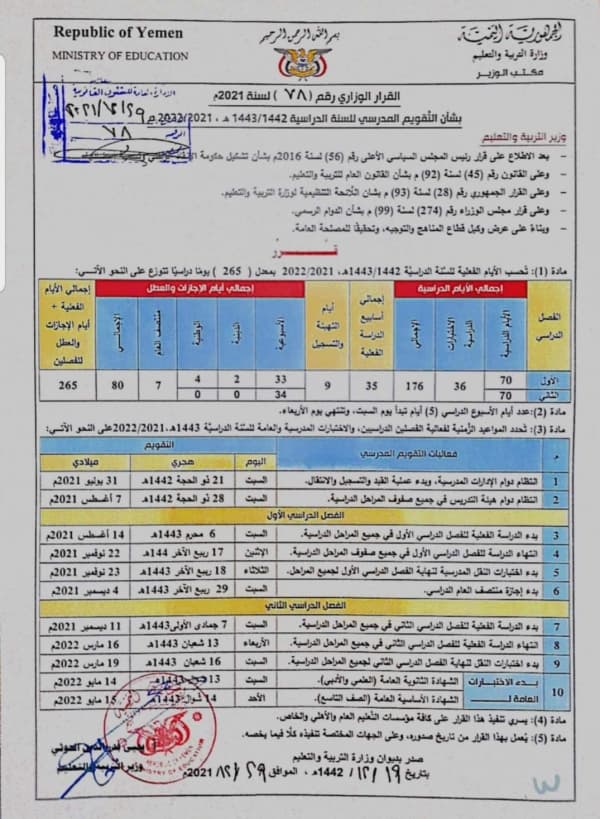 الجمهورية اليمنية
وزارة التربية والتعليم
مكتب الوزير
بسم الله الرحمن الرحيم
Republic of Yemen
MINISTRY OF EDUCATION
القرار الوزاري رقم (٧٨) لسنة 2021م
بشأن التقويم المدرسي للسنة الدراسية 1443/1442هـ ، 2022/2021م
وزير التربية والتعليم
– بعد الاطلاع على قرار رئيس المجلس السياسي الأعلى رقم (56) لسنة 2016م بشأن تشكيل حكومة
– وعلى القانون رقم (45) لسنة (92) م بشأن القانون العام للتربية والتعليم.
– وعلى القرار الجمهوري رقم (28) لسنة (93) م بشأن اللائحة التنظيمية لوزارة التربية والتعليم.
– وعلى قرار مجلس الوزراء رقم (274) لسنة (99) م بشأن الدوام الرسمي.
– وبناءً على عرض وكيل قطاع المناهج والتوجيه، وتحقيقًا للمصلحة العامة.
قـــــرر
مادة (1): تُحسب الأيام الفعلية للسنة الدراسية 1443/1442هـ، 2022/2021م بمعدل ( 265 ) يومًا دراسيًا تتوزع على النحو الآتـــي:
الفصل الدراسي
إجمالي الأيام الدراسية
إجمالي أسابيع الدراسة الفعلية
أيام التهيئة والتسجيل
إجمالي أيام الإجازات والعطل
إجمالي الأيام الفعلية + أيام الإجازات والعطل للفصلين
الأيام الدراسية
الاختبارات المدرسية
الإجمالي
الأسبوعية
الدينية
الوطنية
منتصف العام
الإجمالـــي
الأول 70 36 176 35 9 33 2 4 7 80 265
الثاني 70 34 0 0
مادة (2): عدد أيام الأسبوع الدراسي (5) أيام تبدأ يوم السبت، وتنتهي يوم الأربعاء.
مادة (3): تُحدد المواعيد الزمنية لفعالية الفصلين الدراسيين، والاختبارات المدرسية والعامة للسنة الدراسية 1443هـ،2022/2021م على النحو الآتــي:
م فعاليات التقويم المدرسي التقويم
اليوم هجري ميلادي
1 انتظام دوام الإدارات المدرسية، وبدء عملية القيد والتسجيل والانتقال. السبت 21 ذو الحجة 1442هـ 31 يوليو 2021م
2 انتظام دوام هيئة التدريس في جميع صفوف المراحل الدراسية. السبت 28 ذو الحجة 1442هـ 7 أغسطس 2021م
الفصل الدراسي الأول
3 بدء الدراسة الفعلية للفصل الدراسي الأول في جميع المراحل الدراسية. السبت 6 محرم 1443هـ 14 أغسطس 2021م
4 انتهاء الدراسة للفصل الدراسي الأول في جميع صفوف المراحل الدراسية. الإثنين 17 ربيع الآخر 144هـ 22 نوفمبر 2021م
5 بدء اختبارات النقل المدرسية لنهاية الفصل الدراسي الأول لجميع المراحل. الثلاثاء 18 ربيع الآخر 1443هـ 23 نوفمبر 2021م
6 بدء إجازة منتصف العام الدراسي. السبت 29 ربيع الآخر 1443هـ 4 ديسمبر 2021م
الفصل الدراسي الثاني
7 بدء الدراسة الفعلية للفصل الدراسي الثاني في جميع المراحل الدراسية. السبت 7 جمادى الأولى 1443هـ 11 ديسمبر 2021م
8 انتهاء الدراسة الفعلية للفصل الدراسي الثاني في جميع المراحل الدراسية. الأربعاء 13 شعبان 1443هـ 16 مارس 2022م
9 بدء اختبارات النقل لنهاية الفصل الدراسي الثاني لجميع المراحل الدراسية. السبت 16 شعبان 1443هـ 19 مارس 2022م
10 بدء الاختبارات العامة لـــ الشهادة الثانوية العامة (العلمي والأدبي). السبت 13 1443هـ 14 مايو 2022م
الشهادة الأساسية العامة (الصف التاسع). الأحد 14 شوال 1443هـ 15 مايو 2022م
مادة (4): يسري تنفيذ هذا القرار على كافة مؤسسات التعليم العام والأهلي والخاص.
مادة (5): يُعمل بهذا القرار من تاريخ صدوره، وعلى الجهات المختصة تنفيذه كلًا فيما يخصه.
صدر بديوان وزارة التربية والتعليم
بتاريخ ١٩/ ١٢/ 1442هـ ، الموافق ٢٩/ 2021م
يحيى بدرالدين الحوثي
وزير التربية والتعليم
MINISTRY OF EDUCATION